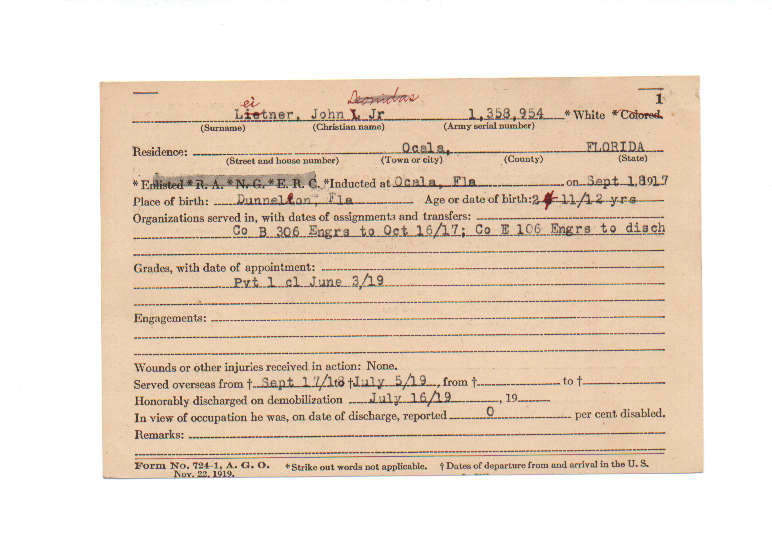 ei Leonidas 1
Lietner, John L Jr 1,358,954 *White *Colored.
(Surname) (Christian name) (Army serial number)
Residence: Ocala, FLORIDA
(Street and house number) (Town or city) (County) (State)
*Enlisted *R. A. *N. G. *E. R. C. *Inducted at Ocala, Fla on Sept 1, 1917
Place of birth: Dunnellon, Fla Age or date of birth: 2 11/12 yrs
Organizations served in, with dates of assignments and transfers:
Co B 306 Engrs to Oct 16/17; Co E 106 Engrs to disch
Grades, with date of appointment:
Pvt 1 cl June 3/19
Engagements:
Wounds or other injuries received in action: None.
Served overseas from † Sept 17/18 to † July 5/19, from † to †
Honorably discharged on demobilization July 16/19, 19
In view of occupation he was, on date of discharge, reported 0 per cent disabled.
Remarks:
Form No. 724-1, A. G. O. *Strike out words not applicable. †Dates of departure from and arrival in the U. S.
Nov. 22, 1919.